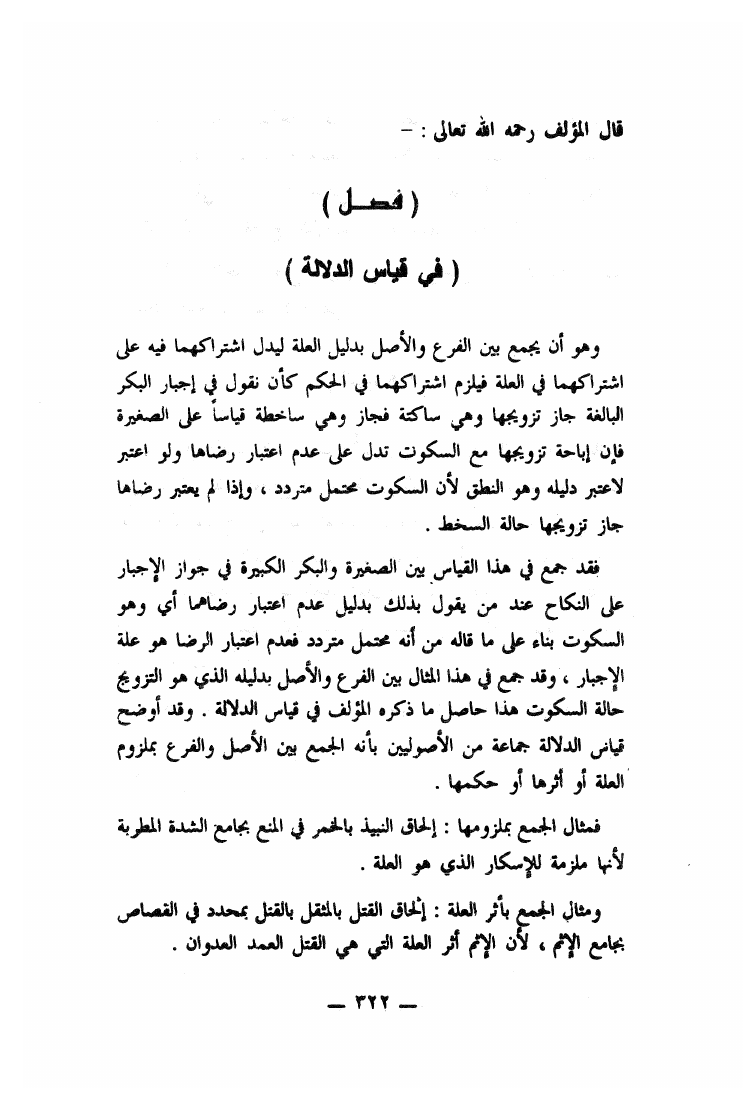 قال المؤلف رحمه الله تعالى : –
( فصـــل )
( في قياس الدلالة )
وهو أن يجمع بين الفرع والأصل بدليل العلة ليدل اشتراكهما فيه على
اشتراكهما في العلة فيلزم اشتراكهما في الحكم كأن نقول في إجبار البكر
البالغة جاز تزويجها وهي ساكتة فجاز وهي ساخطة قياساً على الصغيرة
فإن إباحة تزويجها مع السكوت تدل على عدم اعتبار رضاها ولو اعتبر
لاعتبر دليله وهو النطق لأن السكوت محتمل متردد ، وإذا لم يعتبر رضاها
جاز تزويجها حالة السخط .
فقد جمع في هذا القياس بين الصغيرة والبكر الكبيرة في جواز الإجبار
على النكاح عند من يقول بذلك بدليل عدم اعتبار رضاهما أي وهو
السكوت بناء على ما قاله من أنه محتمل متردد فعدم اعتبار الرضا هو علة
الإجبار ، وقد جمع في هذا المثال بين الفرع والأصل بدليله الذي هو التزويج
حالة السكوت هذا حاصل ما ذكره المؤلف في قياس الدلالة . وقد أوضح
قياس الدلالة جماعة من الأصوليين بأنه الجمع بين الأصل والفرع بملزوم
العلة أو أثرها أو حكمها .
فمثال الجمع بملزومها : إلحاق النبيذ بالخمر في المنع بجامع الشدة المطربة
لأنها ملزمة للإسكار الذي هو العلة .
ومثال الجمع بأثر العلة : إلحاق القتل بالمثقل بالقتل بمحدد في القصاص
بجامع الإثم ، لأن الإثم أثر العلة التي هي القتل العمد العدوان .
— ٣٢٢ —